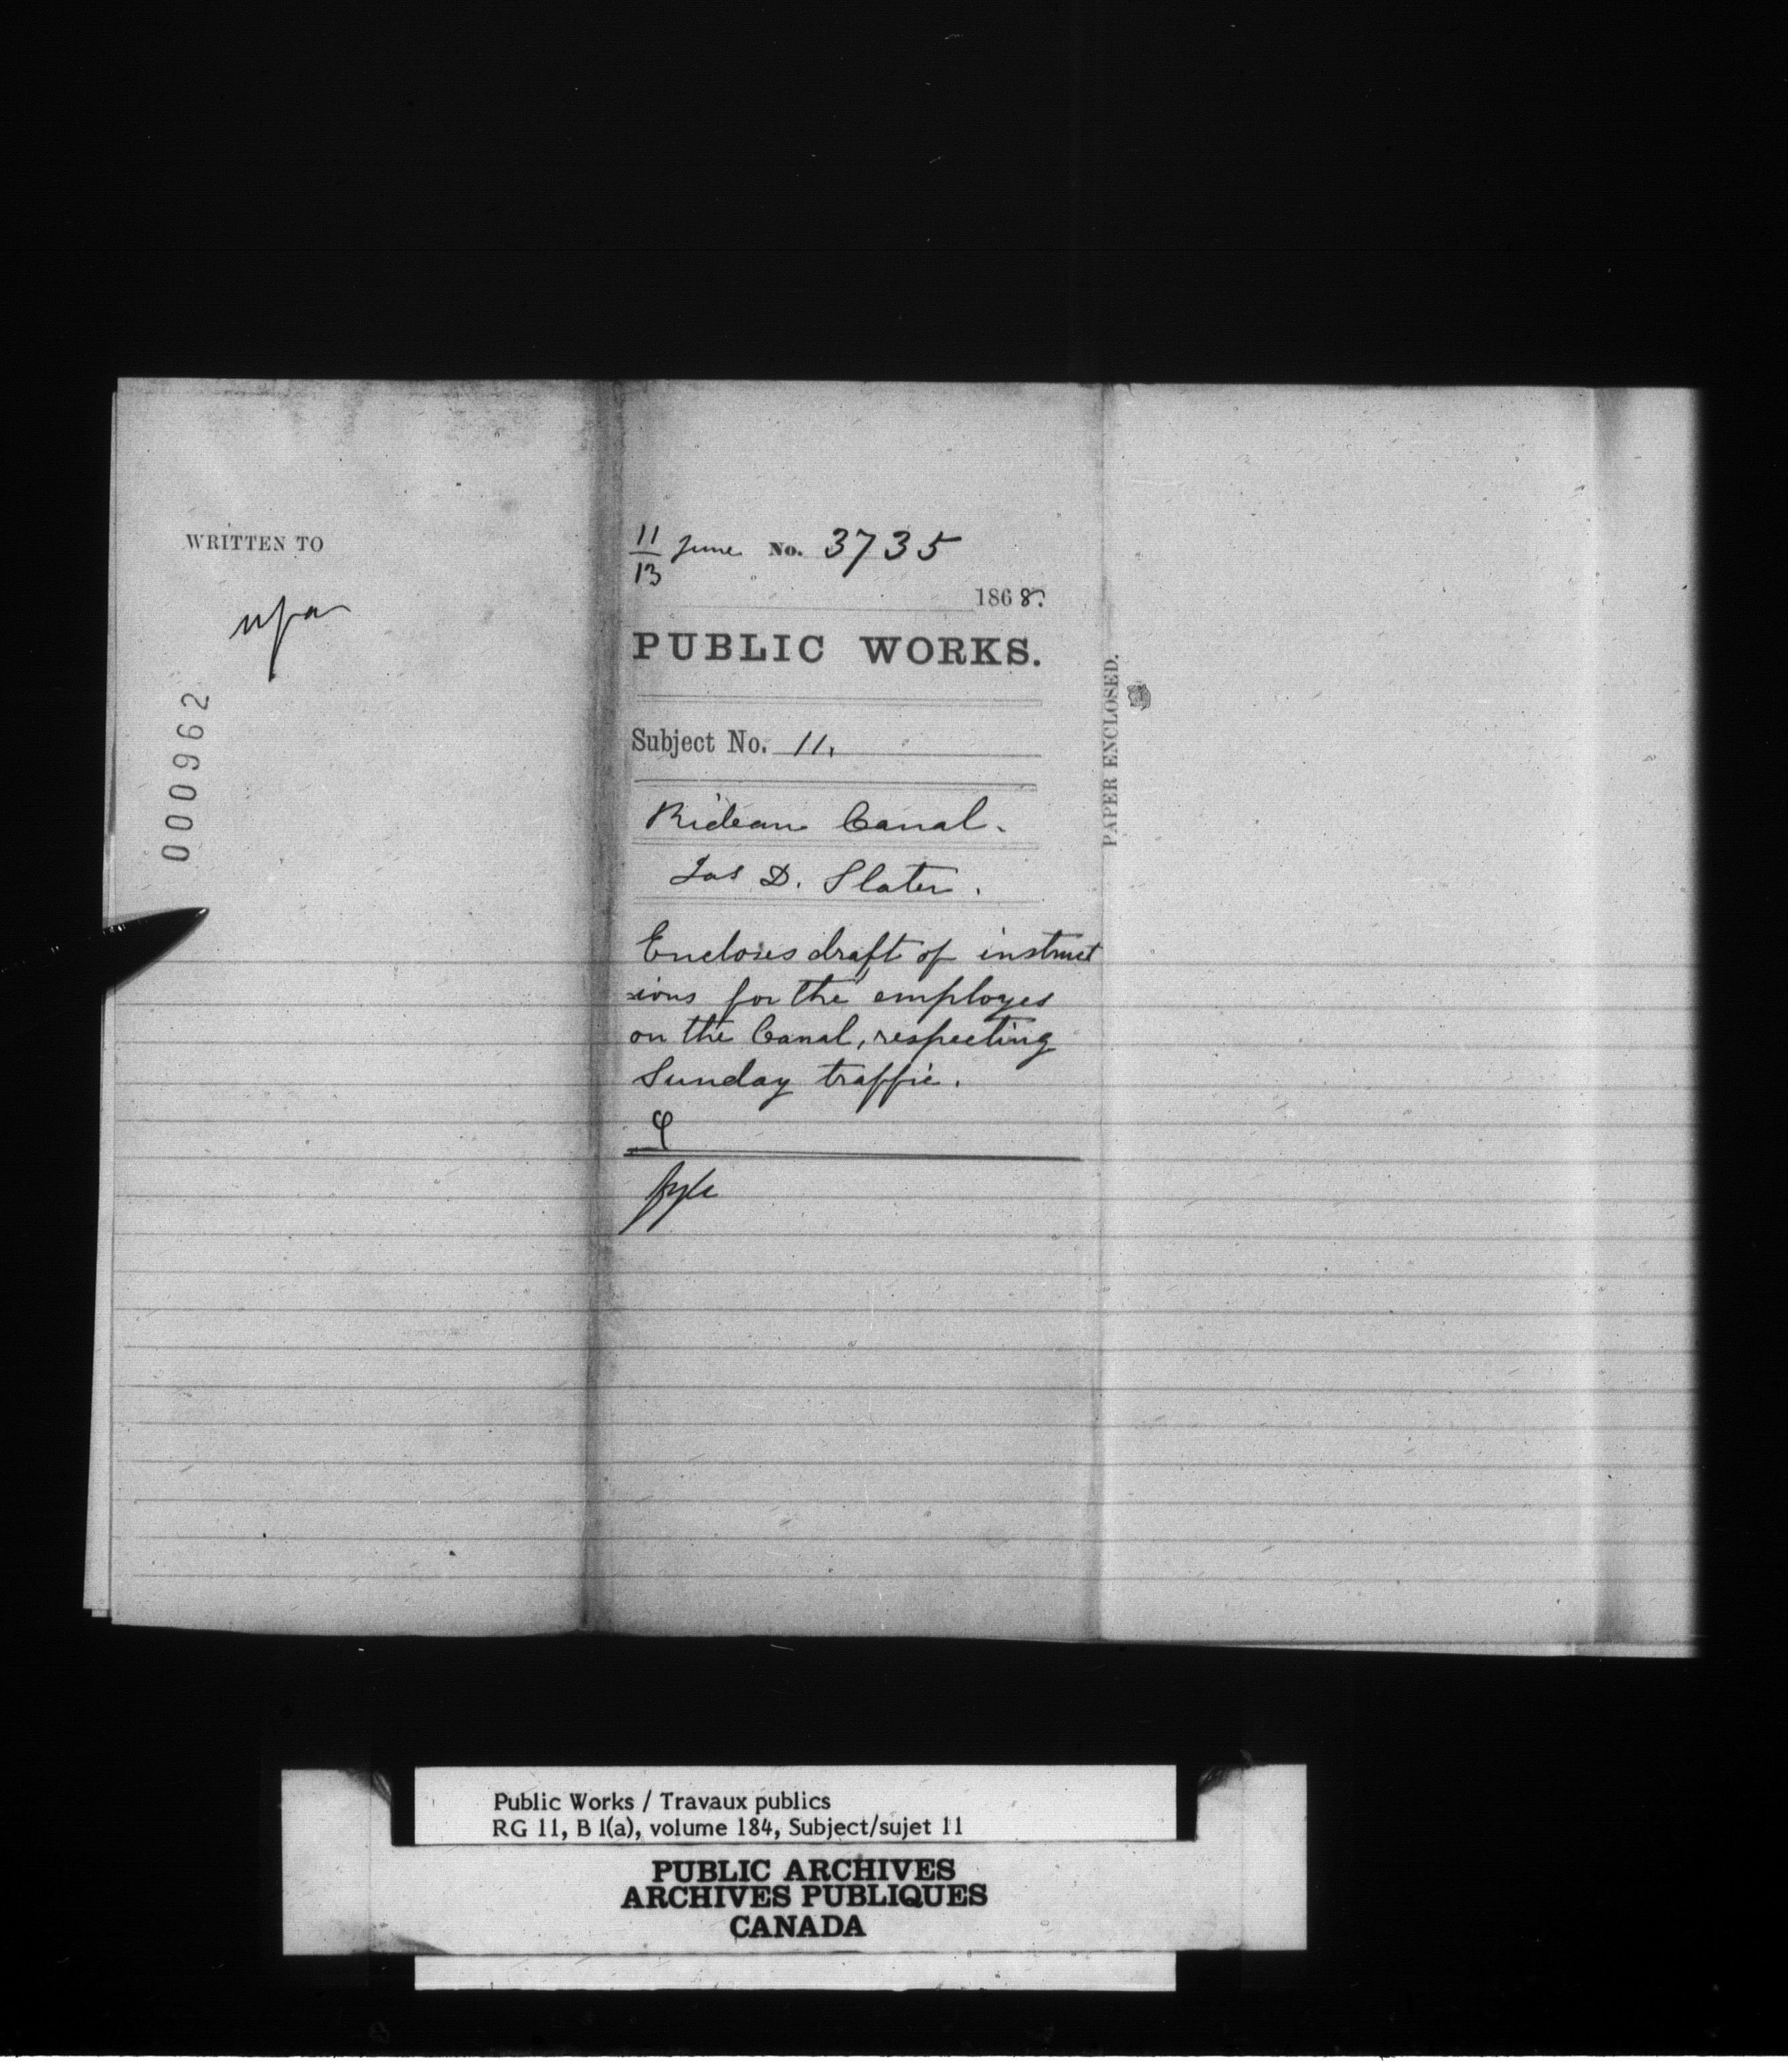 WRITTEN TO
000962
11/13 June No. 3735
1868.
PUBLIC WORKS.
Subject No. 11.
Rideau Canal.
Jas D. Slater.
Encloses draft of instruct
=ions for the employes
on the Canal, respecting
Sunday traffic.
fyle
PAPER ENCLOSED.
Public Works / Travaux publics
RG 11, B 1(a), volume 184, Subject/sujet 11
PUBLIC ARCHIVES
ARCHIVES PUBLIQUES
CANADA